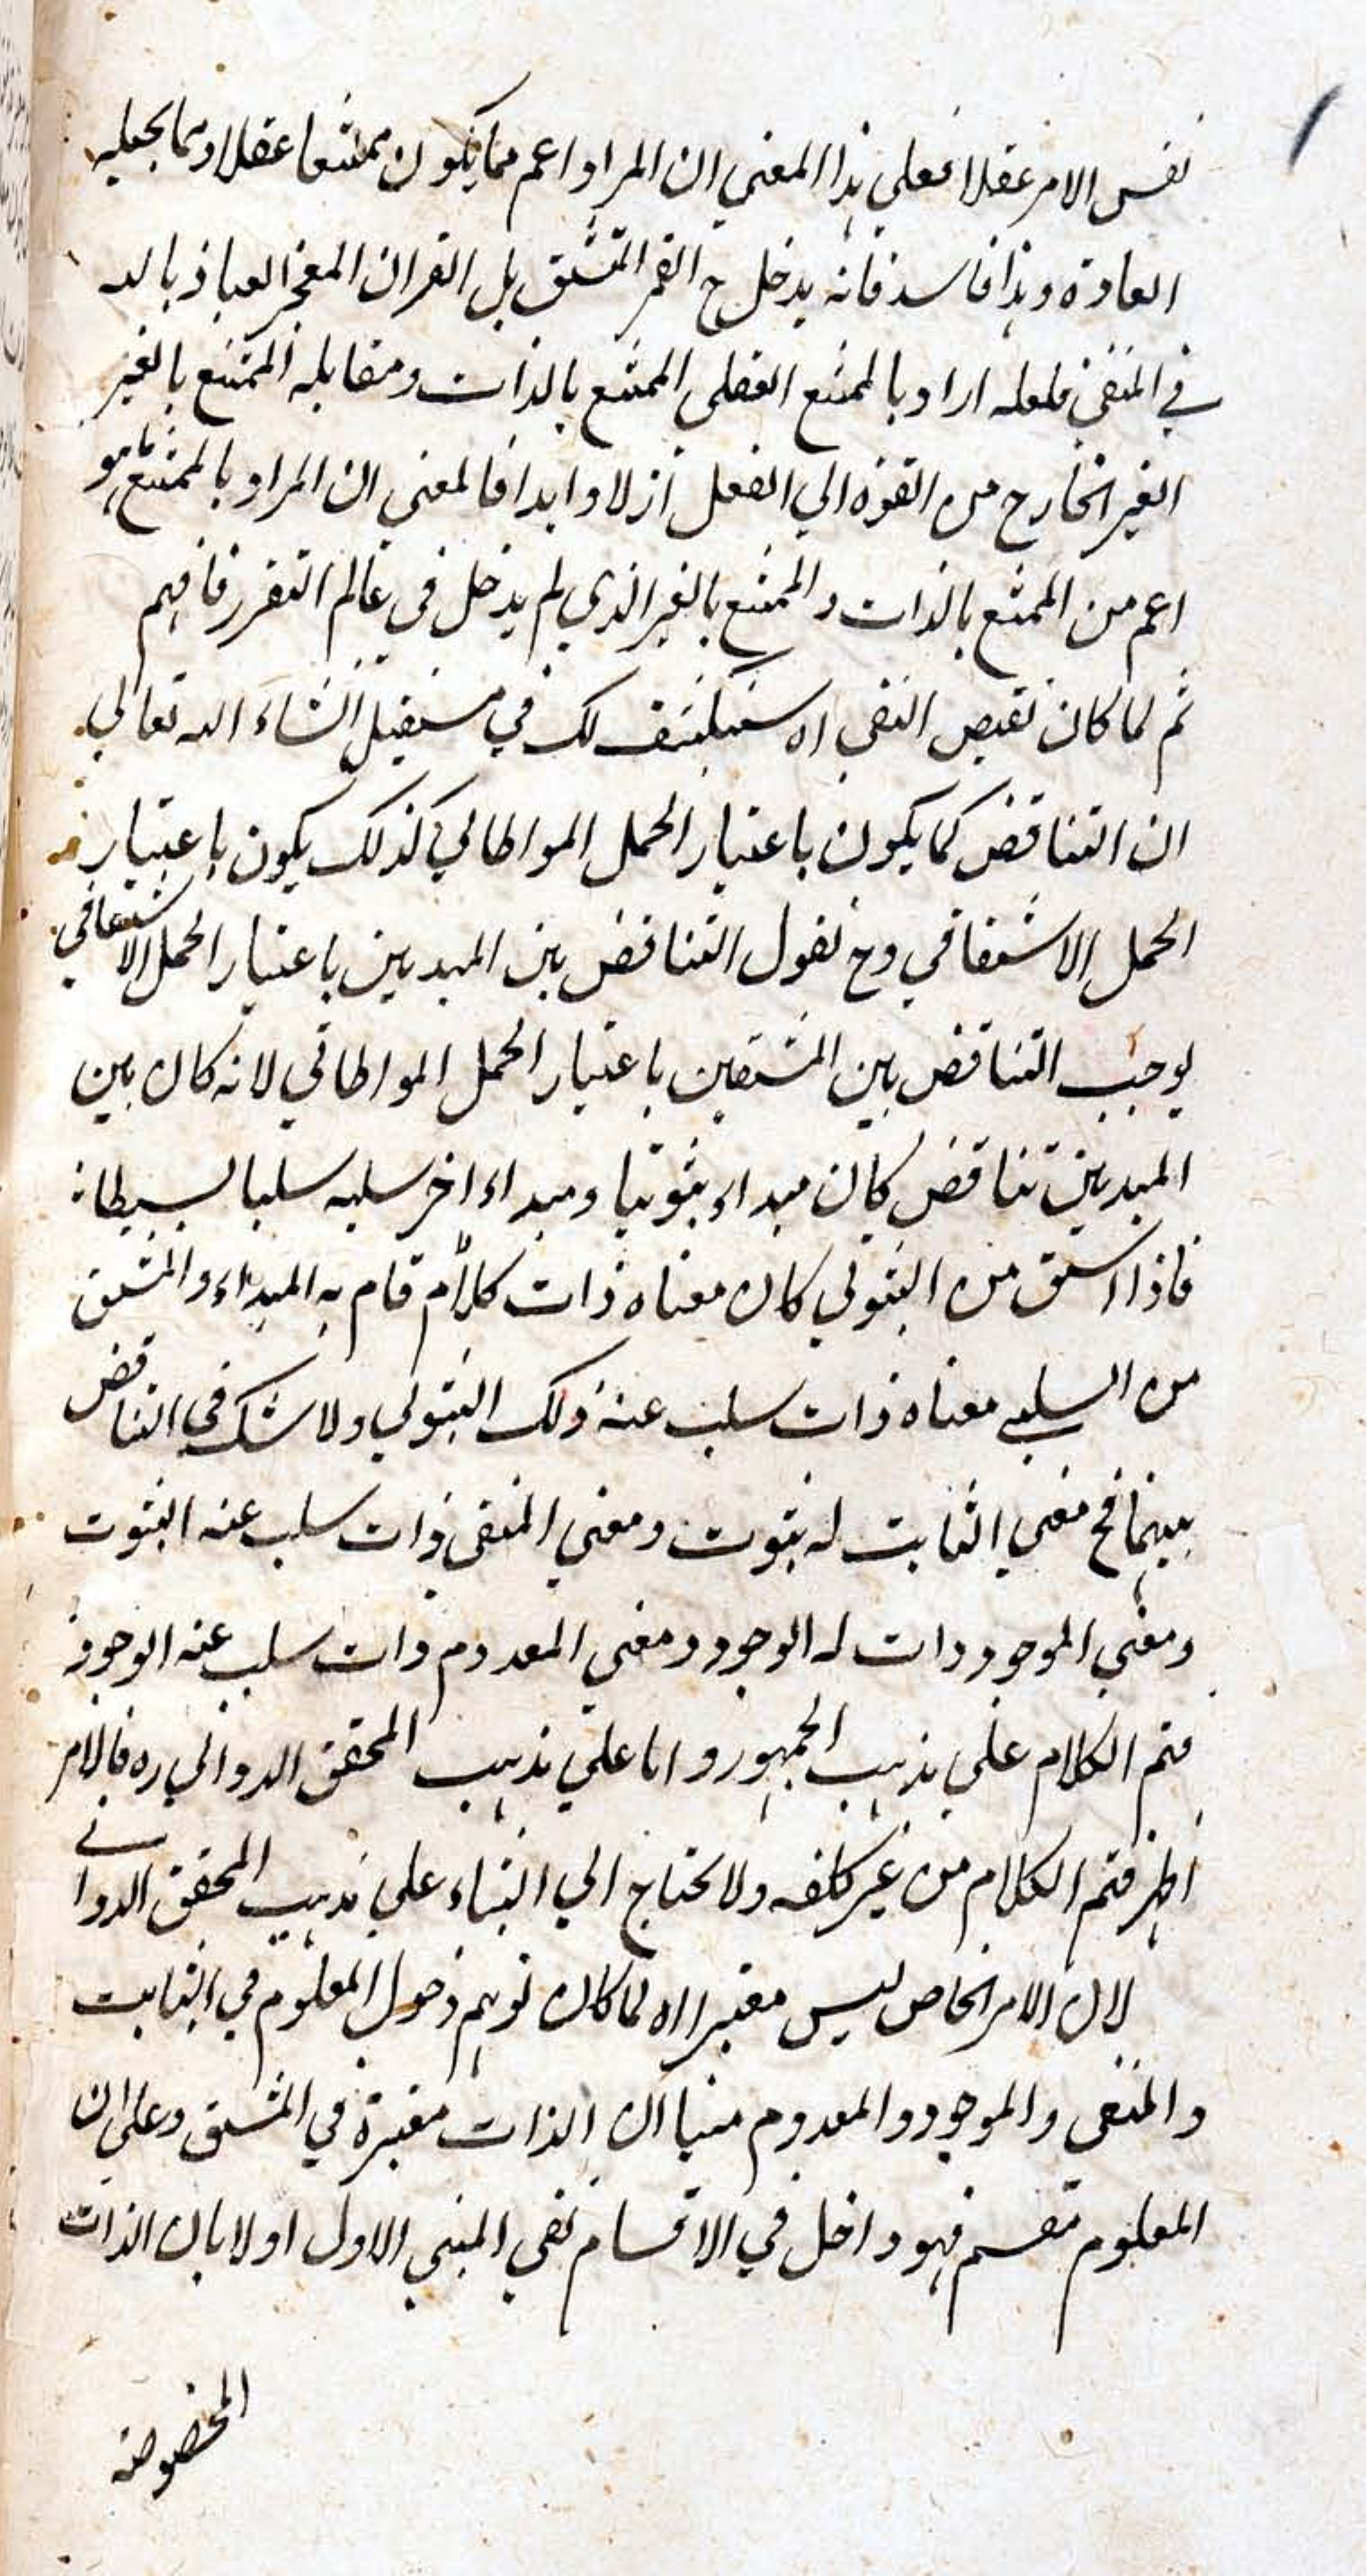 نفس الامر عقلا فعلى هذا المعنى ان المراد اعم مما يكون ممتنعا عقلا ومما يحيله
العادة وهذا فاسد فانه يدخل ح القمر المنشق بل القران المعجز العياذ بالله
في المنفى فلعله اراد بالممتنع العقلى الممتنع بالذات ومقابله الممتنع بالغير
الغير الخارج من القوة الى الفعل ازلا وابدا فالمعنى ان المراد بالممتنع ما هو
اعم من الممتنع بالذات والممتنع بالغير الذي لم يدخل في عالم التقرر فافهم
ثم لما كان نقيض النفى اه سينكشف لك في مستقبل انشاء الله تعالى
ان التناقض كما يكون باعتبار الحمل المواطاتي كذلك يكون باعتبار
الحمل الاشتقاقي وح نقول التناقض بين المبدئين باعتبار الحمل الاشتقاقي
يوجب التناقض بين المشتقين باعتبار الحمل المواطاتي لانه كان بين
المبدئين تناقض كان مبداء ثبوتيا ومبداء اخر سلبه سلبا بسيطا
فاذا اشتق من الثبوتي كان معناه ذات قام به المبداء والمشتق
من السلبي معناه ذات سلب عنه ذلك الثبوتي ولا شك في التناقض
بينهما فح معنى الثابت له ثبوت ومعنى المنفى ذات سلب عنه الثبوت
ومعنى الموجود ذات له الوجود ومعنى المعدوم ذات سلب عنه الوجود
فتم الكلام على مذهب الجمهور واما على مذهب المحقق الدواني ره فالامر
اظهر فتم الكلام من غير كلفه ولا يحتاج الى البناء على مذهب المحقق الدواني
لان الامر الخاص ليس معتبرا اه لما كان توهم دخول المعلوم في الثابت
والمنفى والموجود والمعدوم مبنيا ان الذات معتبرة في المشتق وعلى ان
المعلوم مقسم فهو داخل في الاقسام نفى المبنى الاول اولا بان الذات
المخصوصة